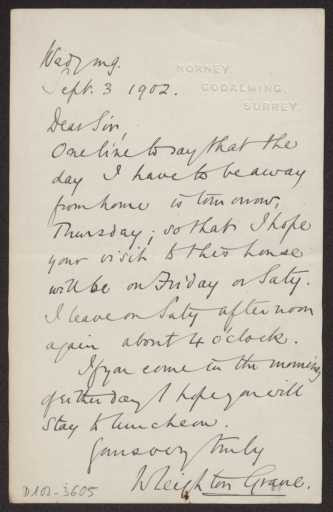 Wedy mg.
NORNEY,
GODALMING,
SURREY.
Sept. 3 1902.
Dear Sir,
One line to say that the
day I have to be away
from home is tomorrow,
Thursday; so that I hope
your visit to this house
will be on Friday or Saty.
I leave on Saty afternoon
again about 4 o'clock.
If you come in the morning
of either day I hope you will
stay to luncheon.
Yours very truly
Wleighton Grane.
D102-3605